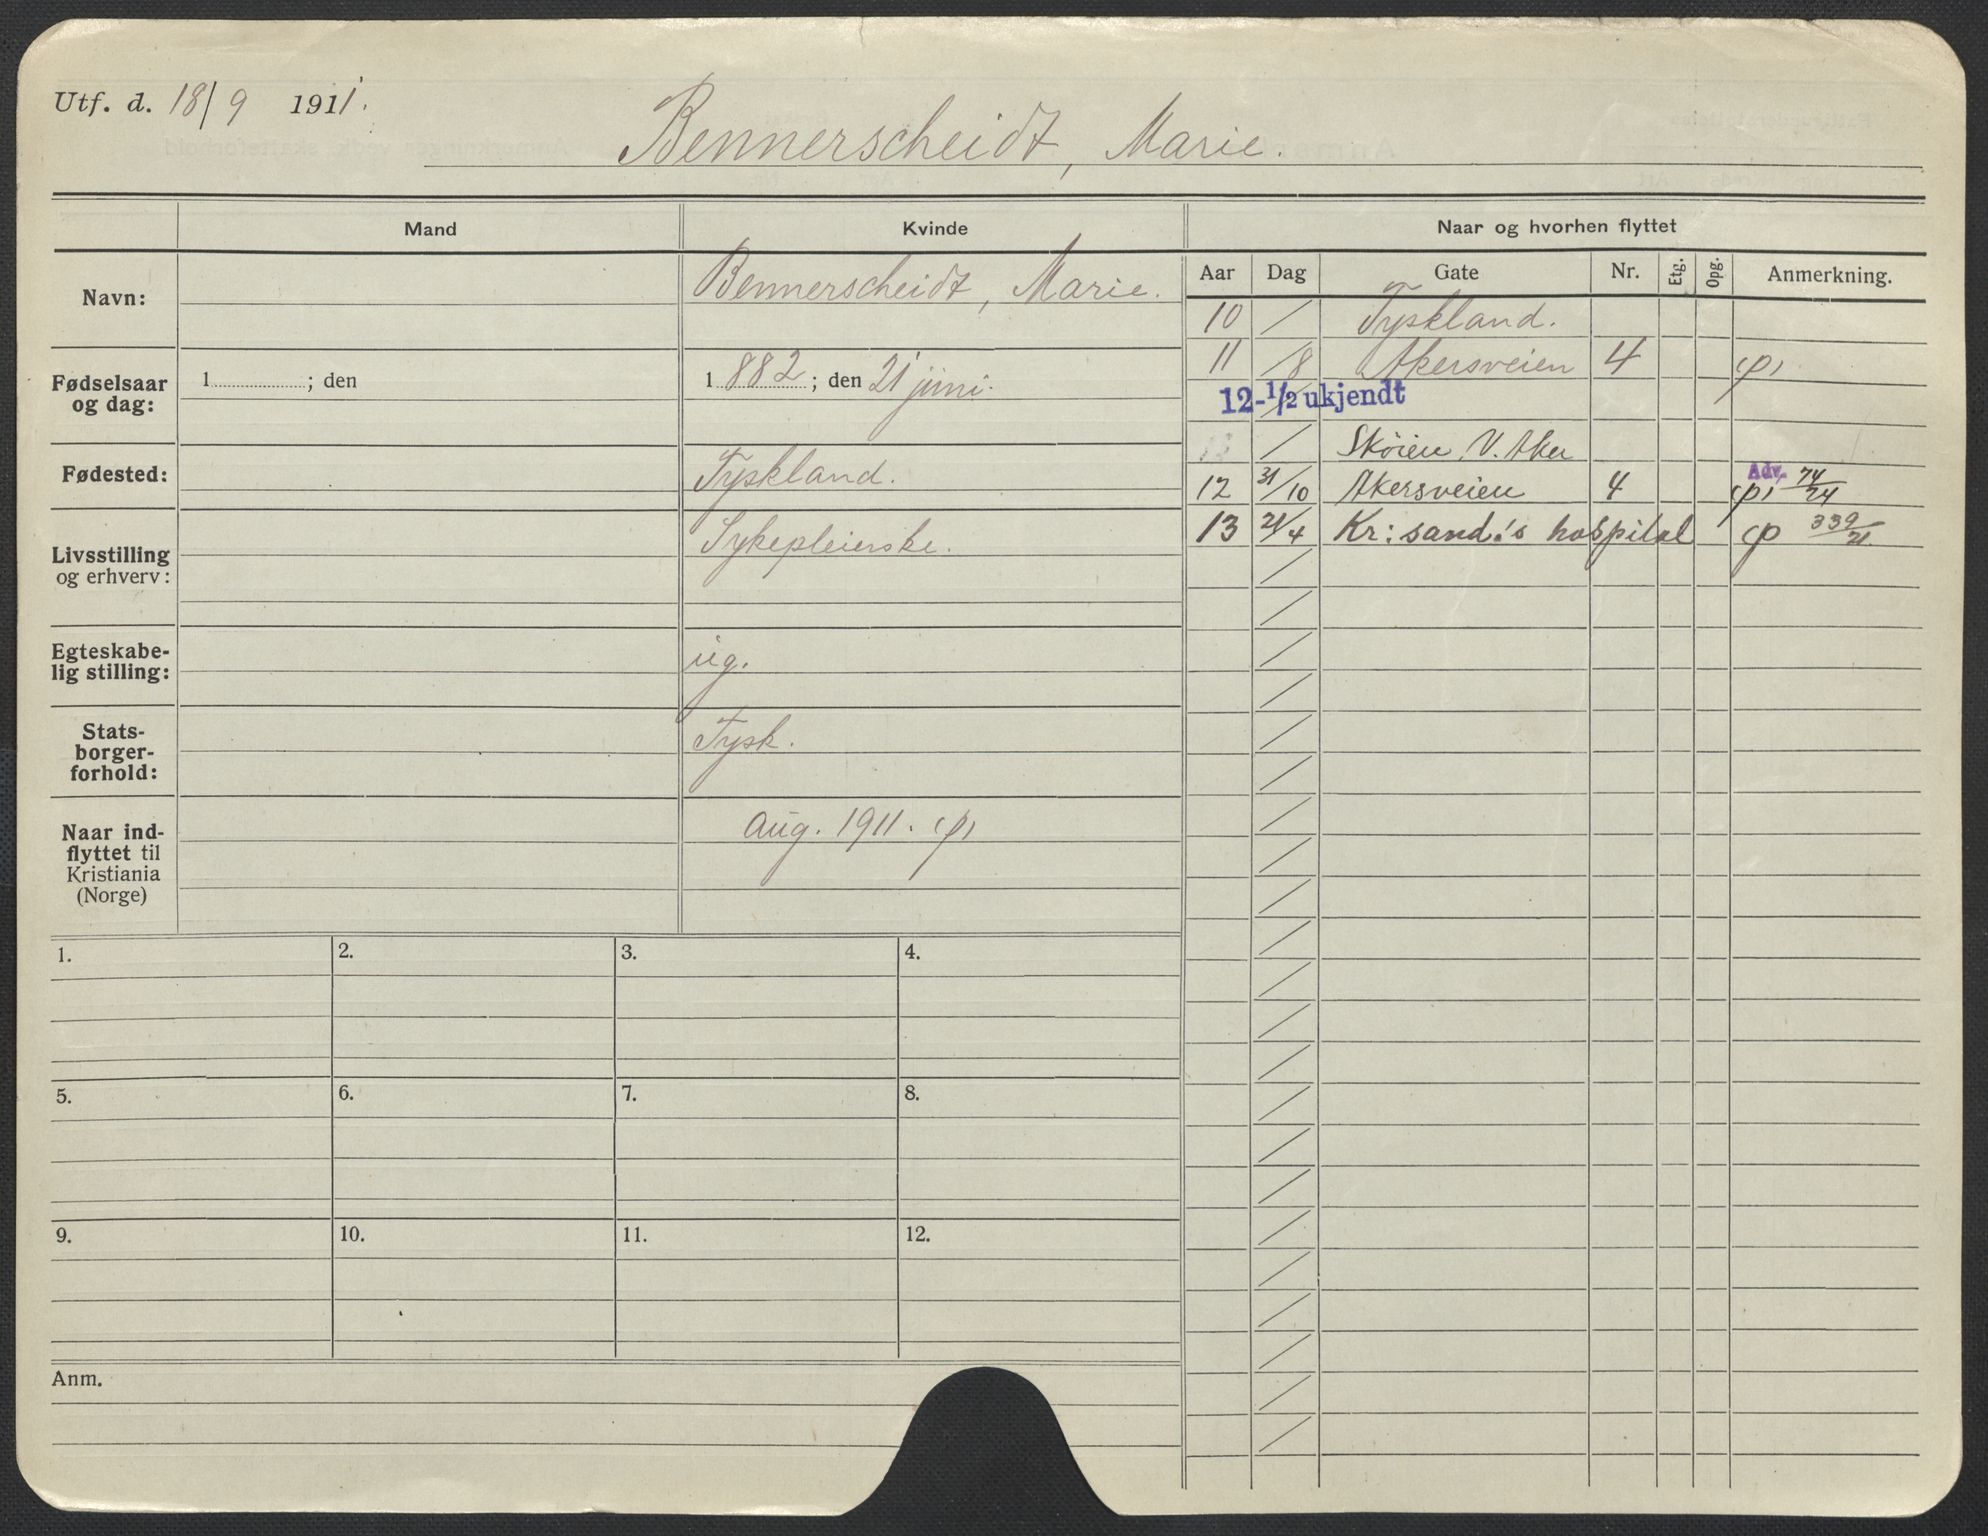 Utf. d. 18/9 1911.
Bennerscheidt, Marie.
Mand Kvinde Naar og hvorhen flyttet
Aar Dag Gate Nr. Etg. Opg. Anmerkning.
Navn: Bennerscheidt, Marie.
Fødselsaar og dag: 1 ; den 1 882 ; den 21 juni.
Fødested: Tyskland.
Livsstilling og erhverv: Sykepleierske.
Egteskabe-
lig stilling: ug.
Stats-
borger-
forhold: Tysk.
Naar ind-
flyttet til
Kristiania
(Norge) Aug. 1911.
10 / Tyskland.
11 /8 Akersveien 4
12-1/2 ukjendt
/ Skøien V. Aker
12 31/10 Akersveien 4 Adv. 74/24
13 21/4 Kr: sand:s hospital 339/21
1. 2. 3. 4.
5. 6. 7. 8.
9. 10. 11. 12.
Anm.